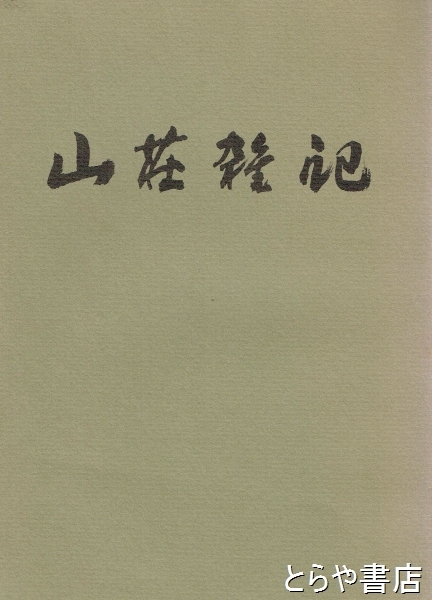 山荘雑記
とらや書店